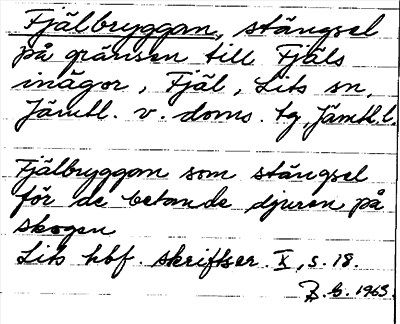 Fjälbryggan, stängsel
på gränsen till Fjäls
inägor, Fjäl, Lits sn,
Jämtl. v. doms. tg, Jämtl.l.
Fjälbryggan som stängsel
för de betande djuren på
skogen
Lits hbf. skrifter. X, s. 18.
1963.